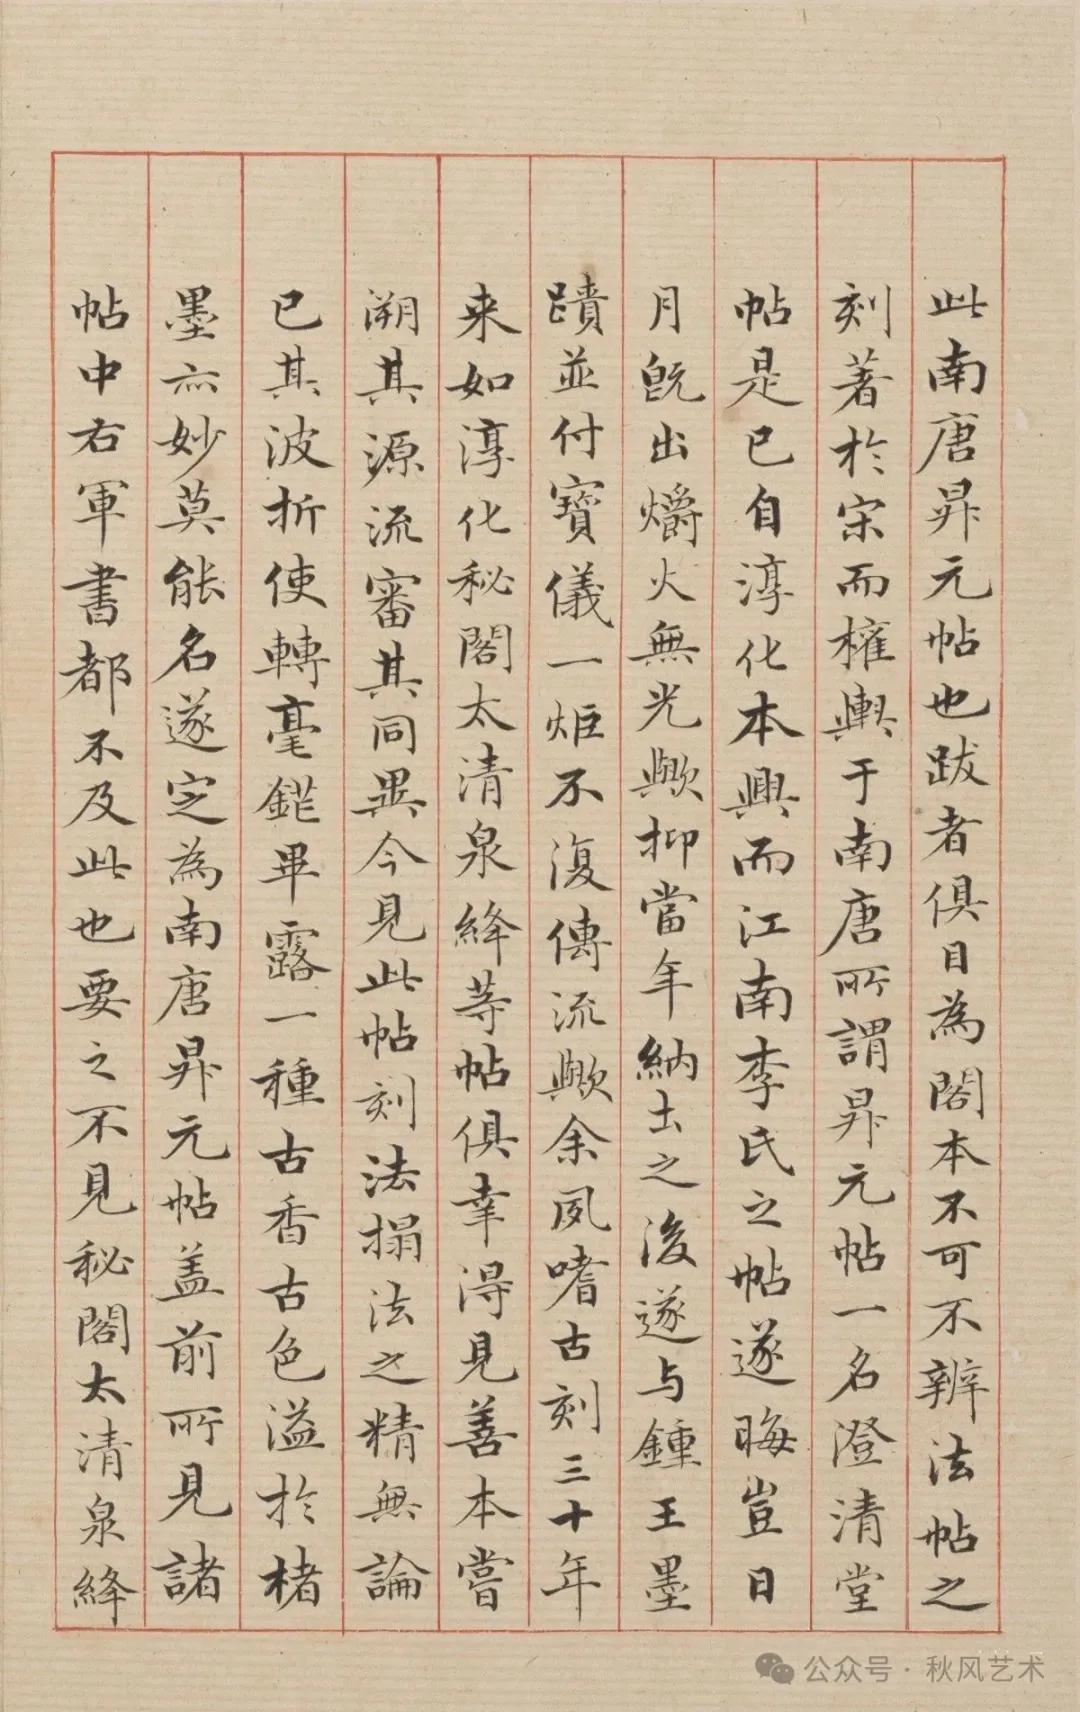 此南唐昇元帖也跋者俱目為閣本不可不辨法帖之
刻著於宋而權輿于南唐所謂昇元帖一名澄清堂
帖是已自淳化本興而江南李氏之帖遂晦豈日
月既出爝火無光歟抑當年納土之後遂与鍾王墨
蹟並付寶儀一炬不復傳流歟余夙嗜古刻三十年
来如淳化秘閣太清泉絳等帖俱幸得見善本嘗
溯其源流審其同異今見此帖刻法搨法之精無論
已其波折使轉毫鋩畢露一種古香古色溢於楮
墨亦妙莫能名遂定為南唐昇元帖盖前所見諸
帖中右軍書都不及此也要之不見秘閣太清泉絳
公众号·秋风艺术